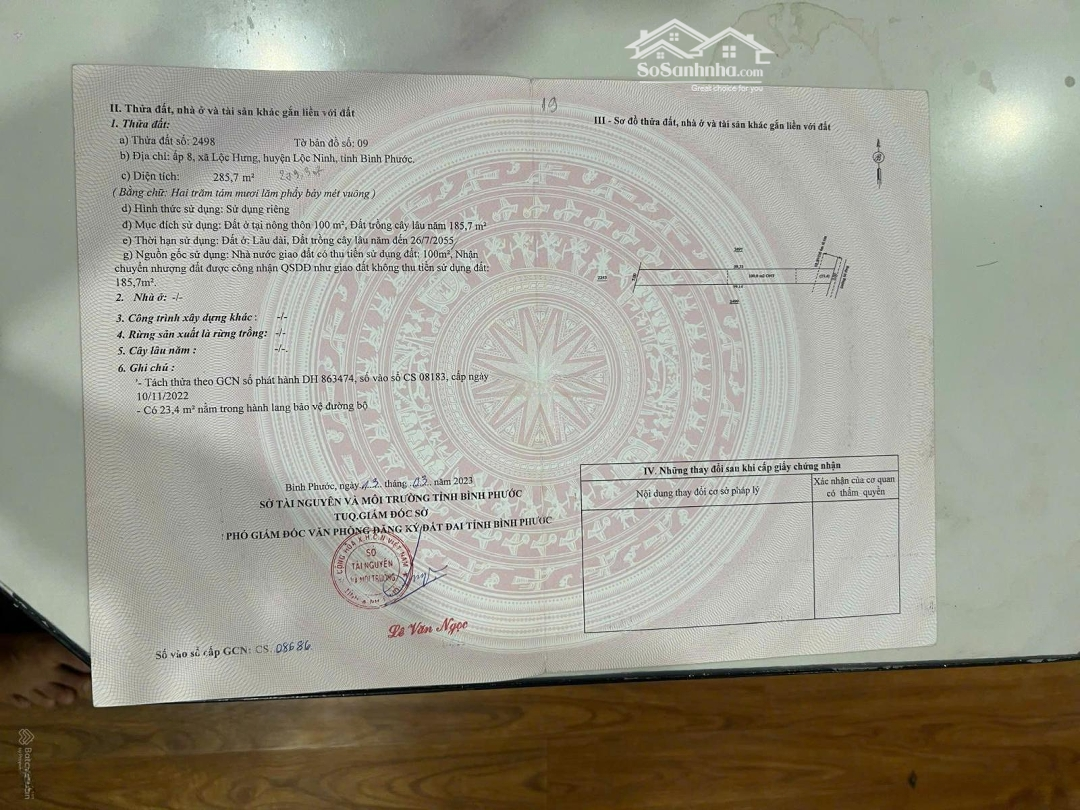 SoSanhnha.com
Great choice for you
19
II. Thửa đất, nhà ở và tài sản khác gắn liền với đất
1. Thửa đất:
a) Thửa đất số: 2498 Tờ bản đồ số: 09
b) Địa chỉ: ấp 8, xã Lộc Hưng, huyện Lộc Ninh, tỉnh Bình Phước.
c) Diện tích: 285,7 m²
( Bằng chữ: Hai trăm tám mươi lăm phẩy bảy mét vuông )
d) Hình thức sử dụng: Sử dụng riêng
đ) Mục đích sử dụng: Đất ở tại nông thôn 100 m², Đất trồng cây lâu năm 185,7 m²
e) Thời hạn sử dụng: Đất ở: Lâu dài, Đất trồng cây lâu năm đến 26/7/2055
g) Nguồn gốc sử dụng: Nhà nước giao đất có thu tiền sử dụng đất: 100m², Nhận
chuyển nhượng đất được công nhận QSDĐ như giao đất không thu tiền sử dụng đất:
185,7m².
2. Nhà ở: -/-
3. Công trình xây dựng khác : -/-
4. Rừng sản xuất là rừng trồng: -/-
5. Cây lâu năm : -/-.
6. Ghi chú :
- Tách thửa theo GCN số phát hành DH 863474, số vào sổ CS 08183, cấp ngày
10/11/2022
- Có 23,4 m² nằm trong hành lang bảo vệ đường bộ
Bình Phước, ngày 13 tháng 03 năm 2023
SỞ TÀI NGUYÊN VÀ MÔI TRƯỜNG TỈNH BÌNH PHƯỚC
TUQ.GIÁM ĐỐC SỞ
PHÓ GIÁM ĐỐC VĂN PHÒNG ĐĂNG KÝ ĐẤT ĐAI TỈNH BÌNH PHƯỚC
CỘNG HÒA X.H.C.N VIỆT NAM
SỞ
TÀI NGUYÊN
VÀ MÔI TRƯỜNG
Lê Văn Ngọc
Số vào sổ cấp GCN: CS. 08686
III - Sơ đồ thửa đất, nhà ở và tài sản khác gắn liền với đất
2497
100.0 m2 ONT
2499
IV. Những thay đổi sau khi cấp giấy chứng nhận
Nội dung thay đổi cơ sở pháp lý
Xác nhận của cơ quan
có thẩm quyền
Batdongsan